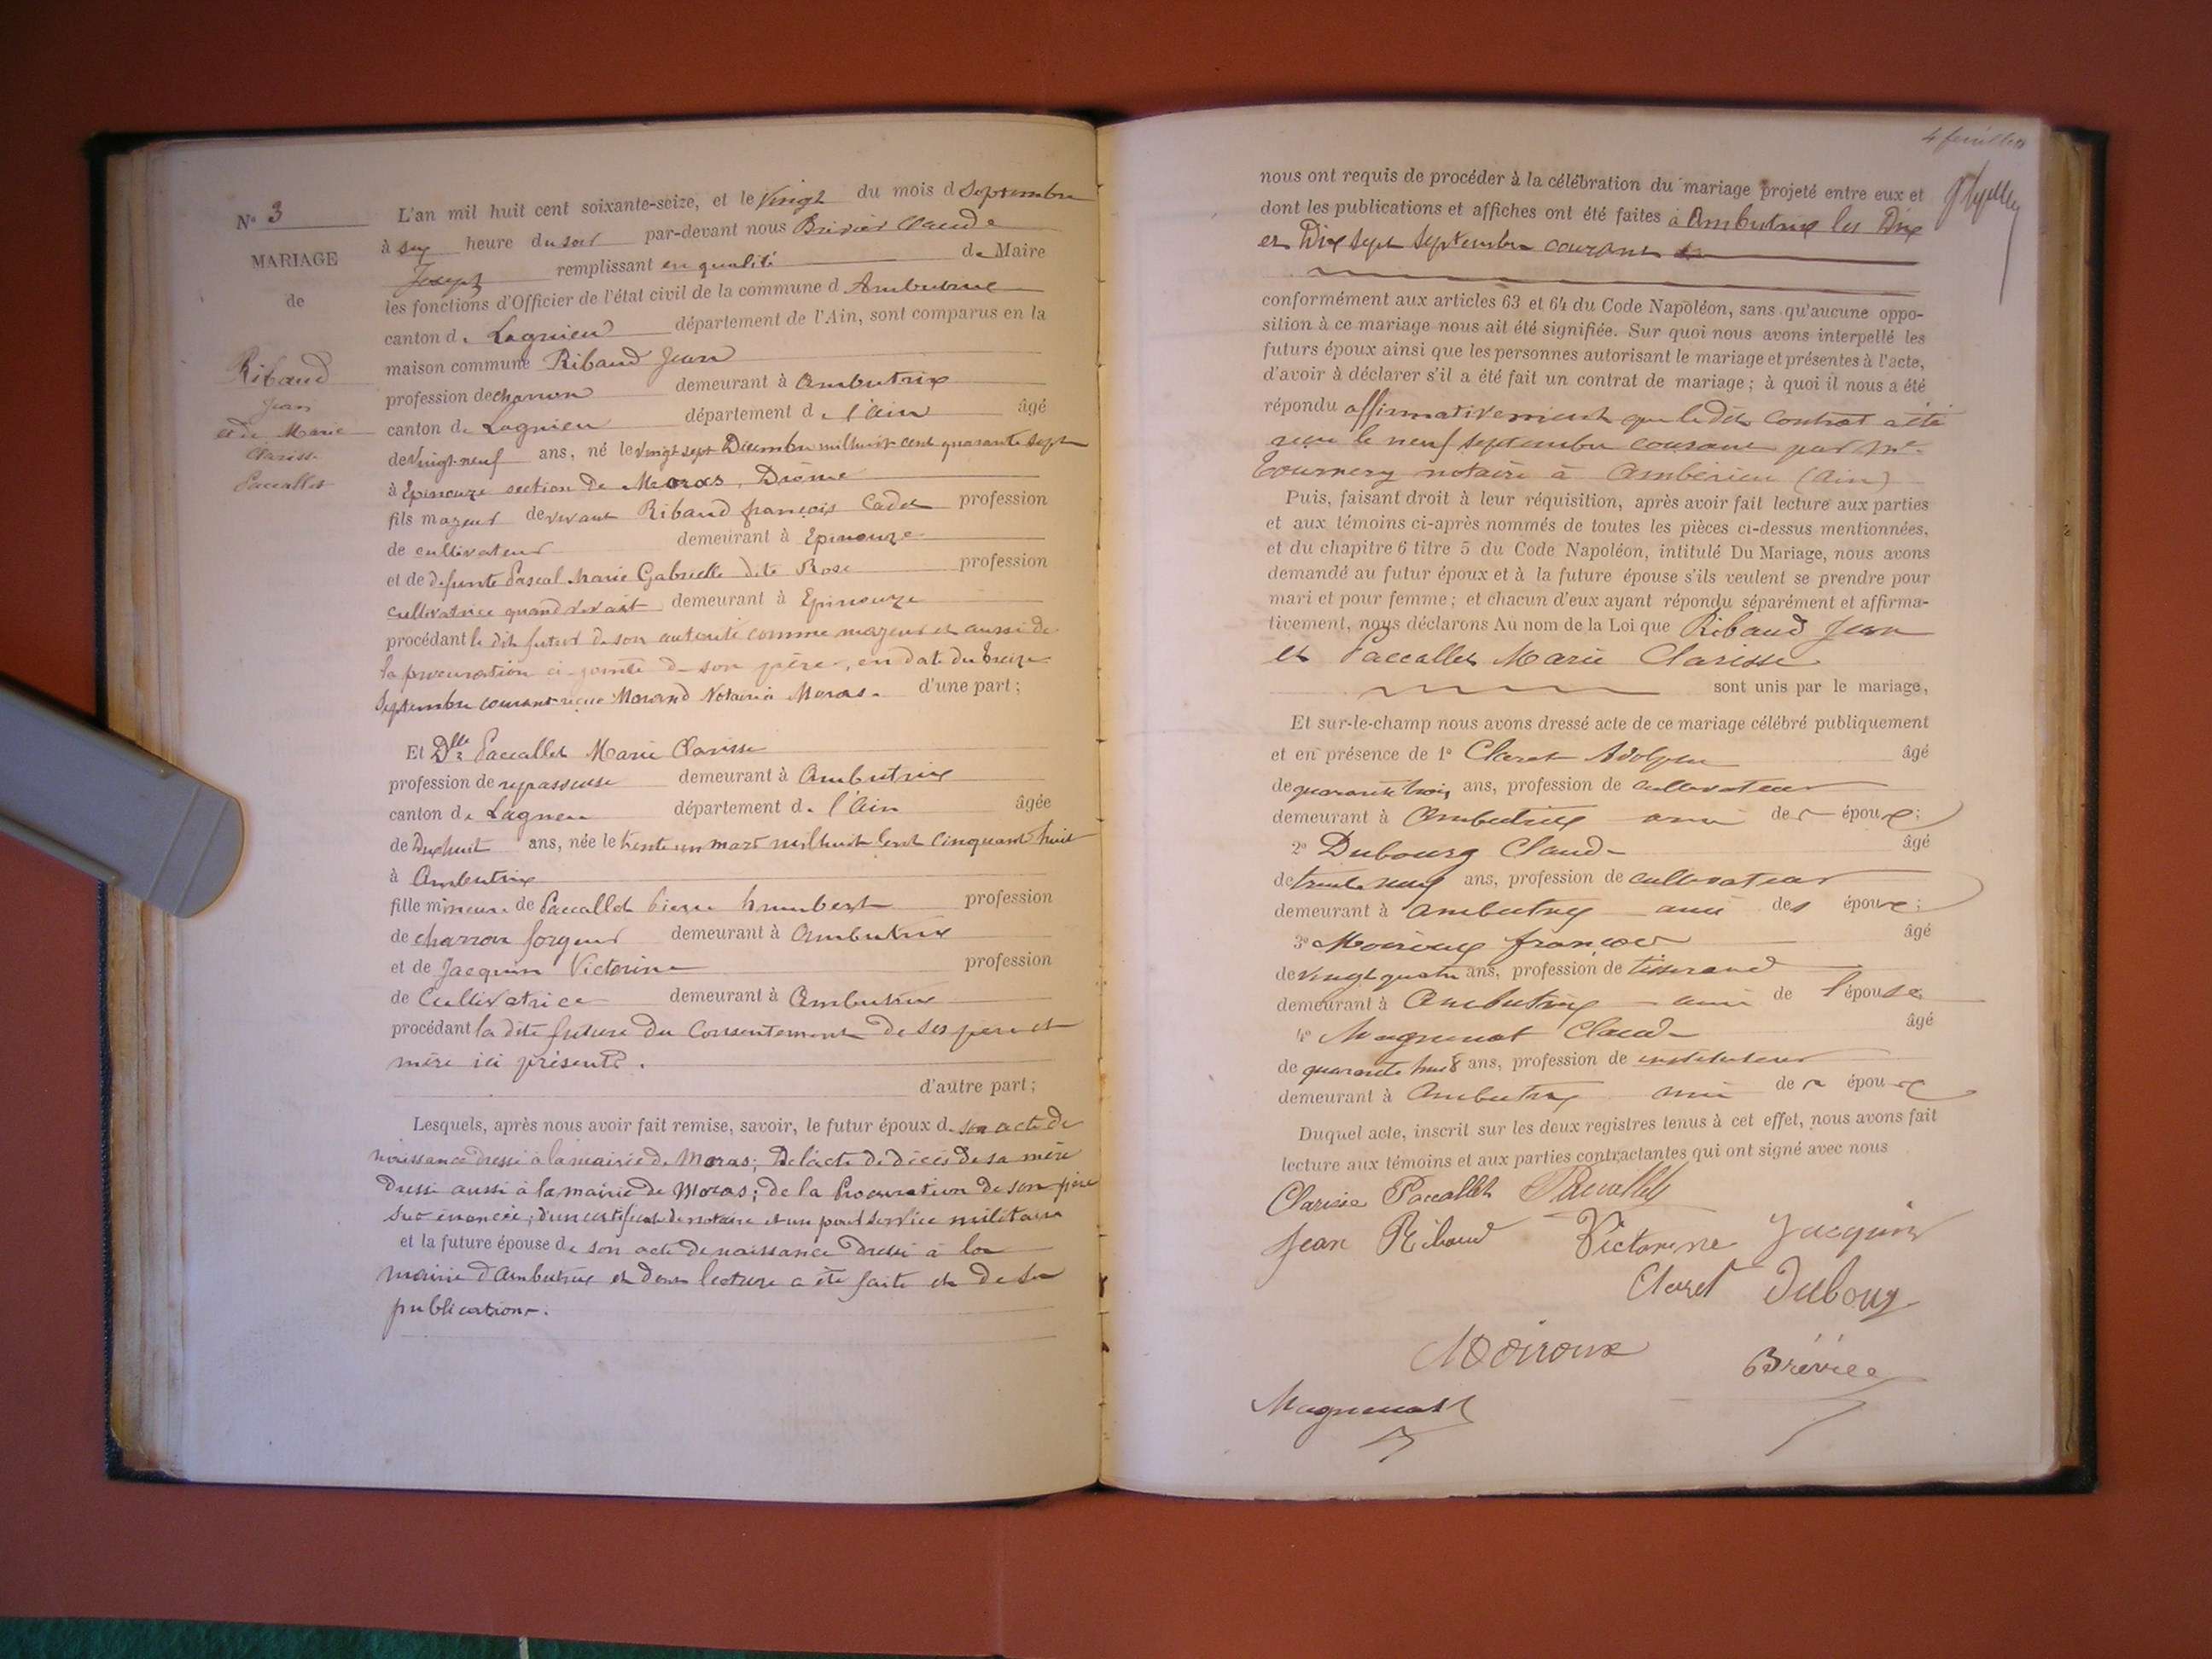 N° 3
MARIAGE
de
Ribaud
Jean
et de Marie
Clarisse
Paccallet
L'an mil huit cent soixante-seize, et le vingt du mois d septembre
à six heure du soir par-devant nous Brévier Claude
Joseph remplissant en qualité de Maire
les fonctions d'Officier de l'état civil de la commune d Ambutrix
canton de Lagnieu département de l'Ain, sont comparus en la
maison commune Ribaud Jean
profession de charron demeurant à Ambutrix
canton de Lagnieu département de l'Ain âgé
de vingt-neuf ans, né le vingt sept Décembre mil huit cent quarante sept
à Epinouze section de Moras, Drôme
fils majeur de vivant Ribaud françois Cadet profession
de cultivateur demeurant à Epinouze
et de défunte Pascal Marie Gabrielle dite Rose profession
cultivatrice quand vivait demeurant à Epinouze
procédant le dit futur de son autorité comme majeur et aussi de
la procuration ci-jointe de son père, en date du treize
septembre courant reçue Morand Notaire à Moras. d'une part;
Et Dlle Paccallet Marie Clarisse
profession de repasseuse demeurant à Ambutrix
canton de Lagnieu département de l'Ain âgée
de Dix huit ans, née le trente un mars mil huit cent cinquante huit
à Ambutrix
fille mineure de Paccallet Pierre humbert profession
de charron forgeur demeurant à Ambutrix
et de Jacquin Victorine profession
de Cultivatrice demeurant à Ambutrix
procédant la dite future du Consentement de ses père et
mère ici présents.
d'autre part;
Lesquels, après nous avoir fait remise, savoir, le futur époux de son acte de
naissance dressé à la mairie de Moras; De l'acte de décès de sa mère
Dressé aussi à la mairie de Moras; de la Procuration de son père
sus énoncée; d'un certificat de notaire et un pour service militaire
et la future épouse de son acte de naissance dressé à la
mairie d'Ambutrix et dont lecture a été faite et de
publications.
4 feuillet
nous ont requis de procéder à la célébration du mariage projeté entre eux et
dont les publications et affiches ont été faites à Ambutrix les Dix
et Dix sept septembre courant
conformément aux articles 63 et 64 du Code Napoléon, sans qu'aucune oppo-
sition à ce mariage nous ait été signifiée. Sur quoi nous avons interpellé les
futurs époux ainsi que les personnes autorisant le mariage et présentes à l'acte,
d'avoir à déclarer s'il a été fait un contrat de mariage; à quoi il nous a été
répondu affirmativement que le dit contrat a été
reçu le neuf septembre courant par Me
Tournery notaire à Ambérieu (Ain)
Puis, faisant droit à leur réquisition, après avoir fait lecture aux parties
et aux témoins ci-après nommés de toutes les pièces ci-dessus mentionnées,
et du chapitre 6 titre 5 du Code Napoléon, intitulé Du Mariage, nous avons
demandé au futur époux et à la future épouse s'ils veulent se prendre pour
mari et pour femme; et chacun d'eux ayant répondu séparément et affirma-
tivement, nous déclarons Au nom de la Loi que Ribaud Jean
et Paccallet Marie Clarisse
sont unis par le mariage,
Et sur-le-champ nous avons dressé acte de ce mariage célébré publiquement
et en présence de 1° Claret Adolphe âgé
de quarante trois ans, profession de cultivateur
demeurant à Ambutrix ami de époux;
2° Dubourg Claude âgé
de trente neuf ans, profession de cultivateur
demeurant à Ambutrix ami des époux;
3° Moiroux françois âgé
de vingt quatre ans, profession de tisserand
demeurant à Ambutrix ami de l'épouse;
4° Magnenot Claude âgé
de quarante huit ans, profession de instituteur
demeurant à Ambutrix ami de époux
Duquel acte, inscrit sur les deux registres tenus à cet effet, nous avons fait
lecture aux témoins et aux parties contractantes qui ont signé avec nous
Clarisse Paccallet Paccallet
Jean Ribaud Victorine Jacquin
Claret Dubourg
Moiroux
Magnenot